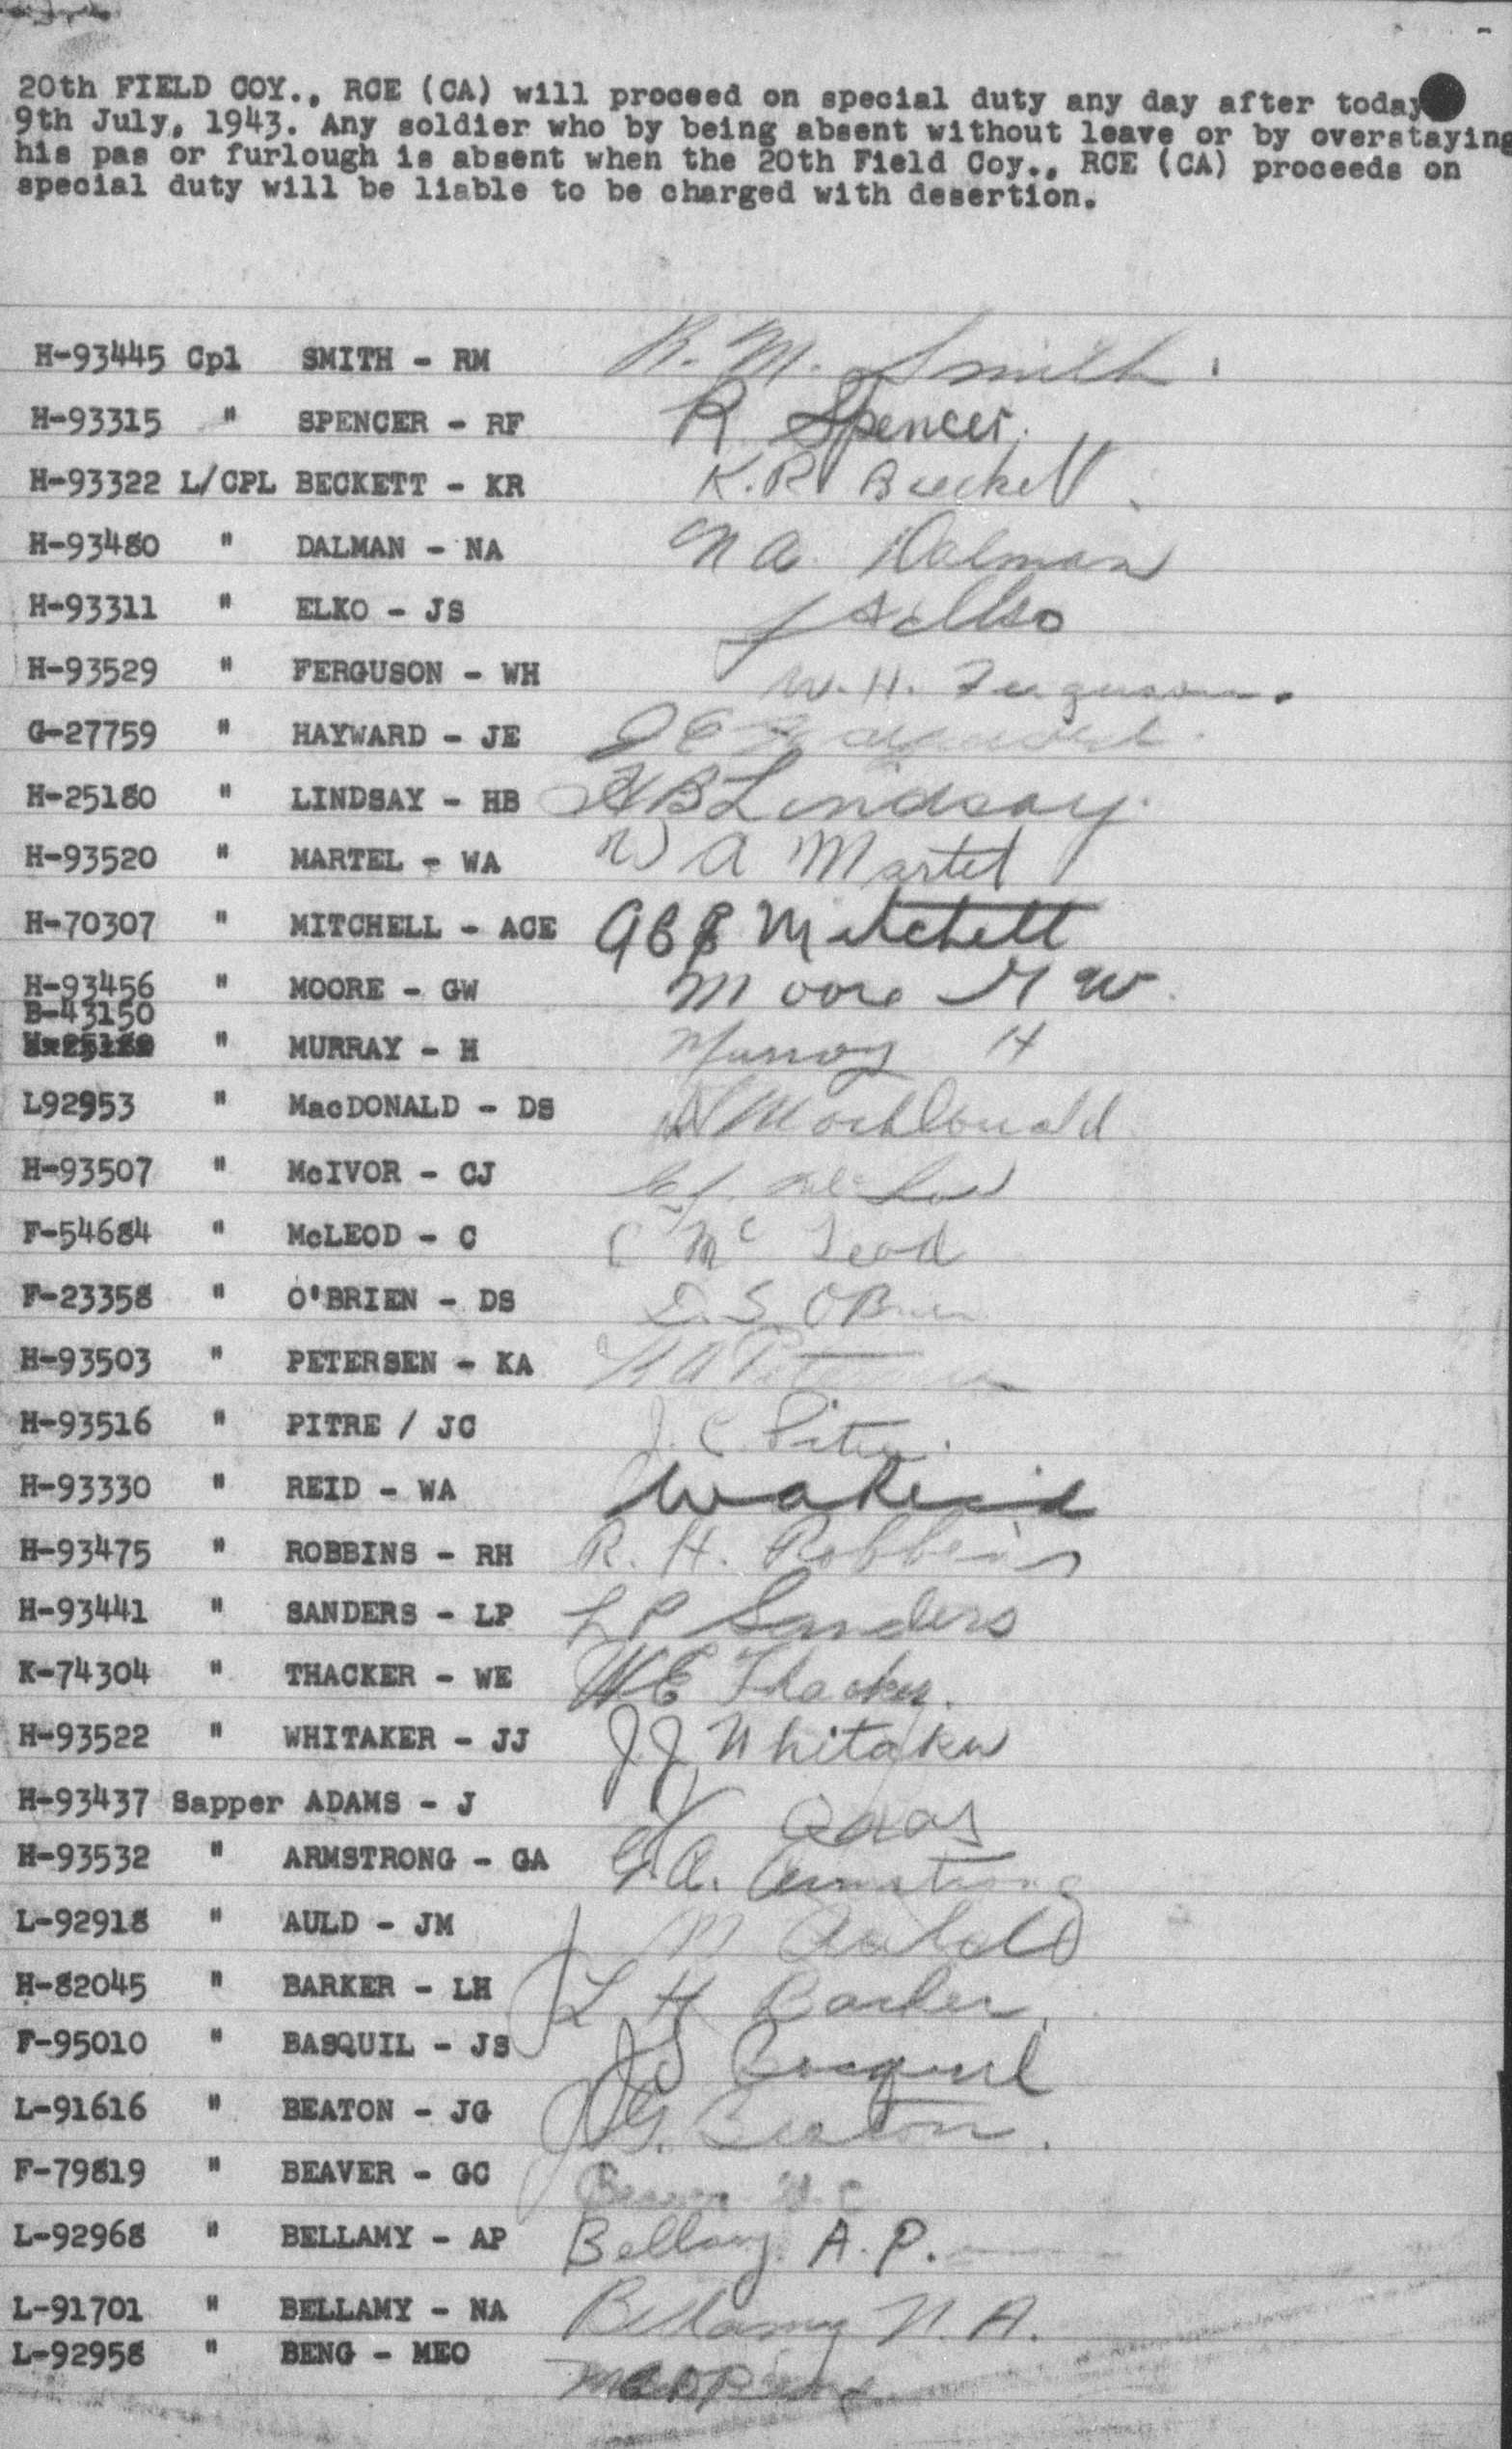 20th FIELD COY., RCE (CA) will proceed on special duty any day after today
9th July, 1943. Any soldier who by being absent without leave or by overstaying
his pas or furlough is absent when the 20th Field Coy., RCE (CA) proceeds on
special duty will be liable to be charged with desertion.
H-93445 Cpl SMITH - RM R. M. Smith
H-93315 " SPENCER - RF R. Spencer.
H-93322 L/CPL BECKETT - KR K.R Beckett
H-93480 " DALMAN - NA N A. Dalman
H-93311 " ELKO - JS J S Elko
H-93529 " FERGUSON - WH W. H. Ferguson.
G-27759 " HAYWARD - JE J E Hayward.
H-25180 " LINDSAY - HB H B Lindsay.
H-93520 " MARTEL - WA W A Martel
H-70307 " MITCHELL - ACE Mitchell
H-93456 " MOORE - GW Moore G W.
B-43150
" MURRAY - H Murray H
L92953 " MacDONALD - DS MacDonald
H-93507 " McIVOR - CJ C J.
F-54684 " McLEOD - C C Mc Leod
F-23358 " O'BRIEN - DS D. S. O'Brien
H-93503 " PETERSEN - KA K A Petersen
H-93516 " PITRE / JC J. C. Pitre.
H-93330 " REID - WA W A Reid
H-93475 " ROBBINS - RH R. H. Robbins
H-93441 " SANDERS - LP L P Sanders
K-74304 " THACKER - WE W E Thacker.
H-93522 " WHITAKER - JJ J J Whitaker
H-93437 Sapper ADAMS - J J
H-93532 " ARMSTRONG - GA G. A. Armstrong
L-92918 " AULD - JM J M Auld
H-82045 " BARKER - LH L H Barker.
F-95010 " BASQUIL - JS J S Basquil
L-91616 " BEATON - JG J G. Beaton.
F-79819 " BEAVER - GC Beaver G. C
L-92968 " BELLAMY - AP Bellamy. A. P.
L-91701 " BELLAMY - NA Bellamy N. A.
L-92958 " BENG - MEO